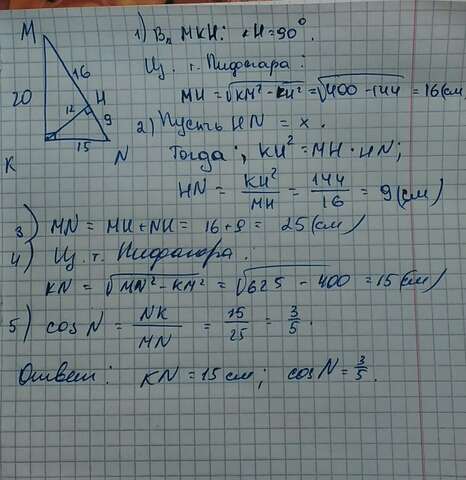 M
16
20
12
H
9
15
K
N
1) В △ MKH: ∠H = 90°.
Из т. Пифагора:
MH = √KM² - KH² = √400 - 144 = 16 (см)
2) Пусть HN = x.
Тогда; KH² = MH · HN;
HN = KH²/MH = 144/16 = 9 (см)
3) MN = MH + NH = 16 + 9 = 25 (см)
4) Из т. Пифагора:
KN = √MN² - KM² = √625 - 400 = 15 (см)
5) cos N = NK/MN = 15/25 = 3/5.
Ответ: KN = 15 см; cos N = 3/5.